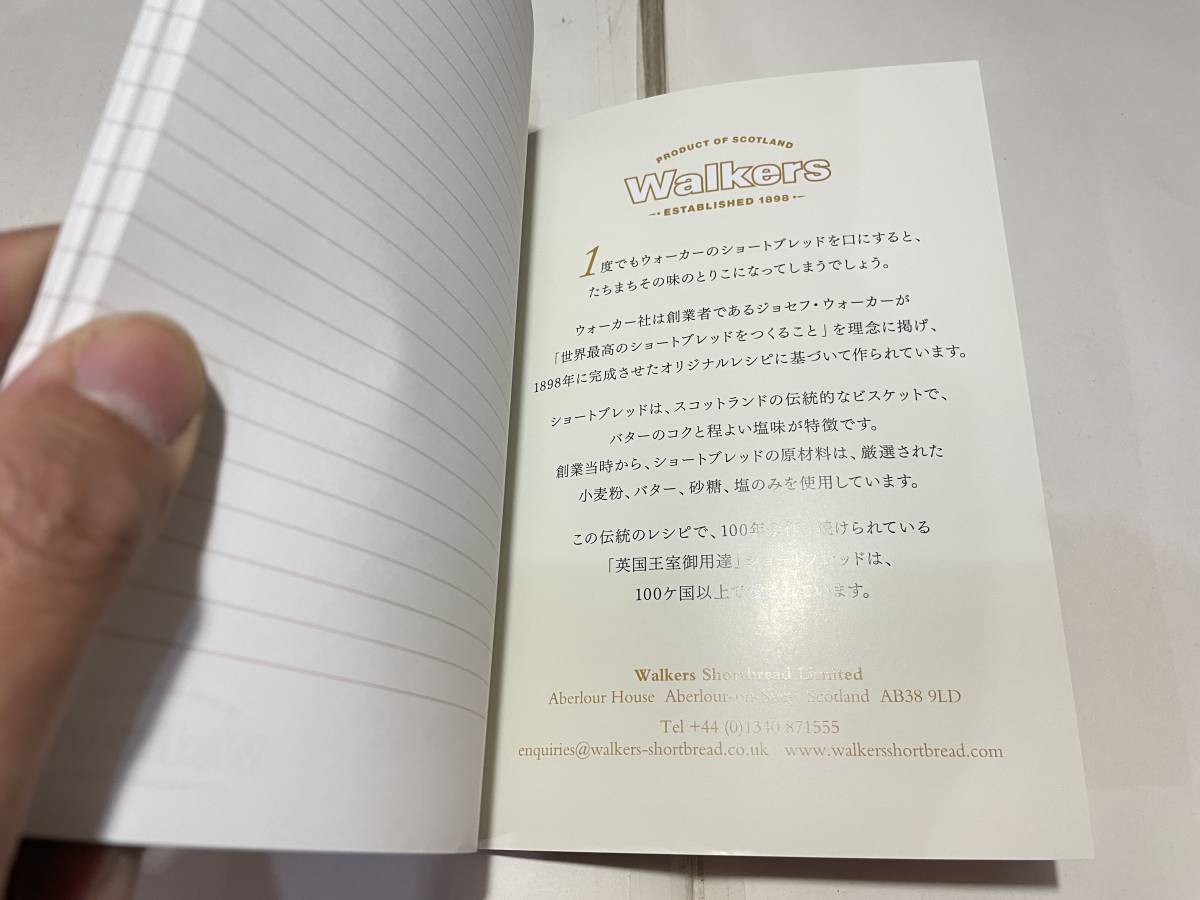 PRODUCT OF SCOTLAND
Walkers
ESTABLISHED 1898
1度でもウォーカーのショートブレッドを口にすると、
たちまちその味のとりこになってしまうでしょう。
ウォーカー社は創業者であるジョセフ・ウォーカーが
「世界最高のショートブレッドをつくること」を理念に掲げ、
1898年に完成させたオリジナルレシピに基づいて作られています。
ショートブレッドは、スコットランドの伝統的なビスケットで、
バターのコクと程よい塩味が特徴です。
創業当時から、ショートブレッドの原材料は、厳選された
小麦粉、バター、砂糖、塩のみを使用しています。
この伝統のレシピで、100年 続けられている
「英国王室御用達」ショートブレッドは、
100ケ国以上で います。
Walkers Shortbread Limited
Aberlour House Aberlour-on-Spey Scotland AB38 9LD
Tel +44 (0)1340 871555
enquiries@walkers-shortbread.co.uk www.walkersshortbread.com